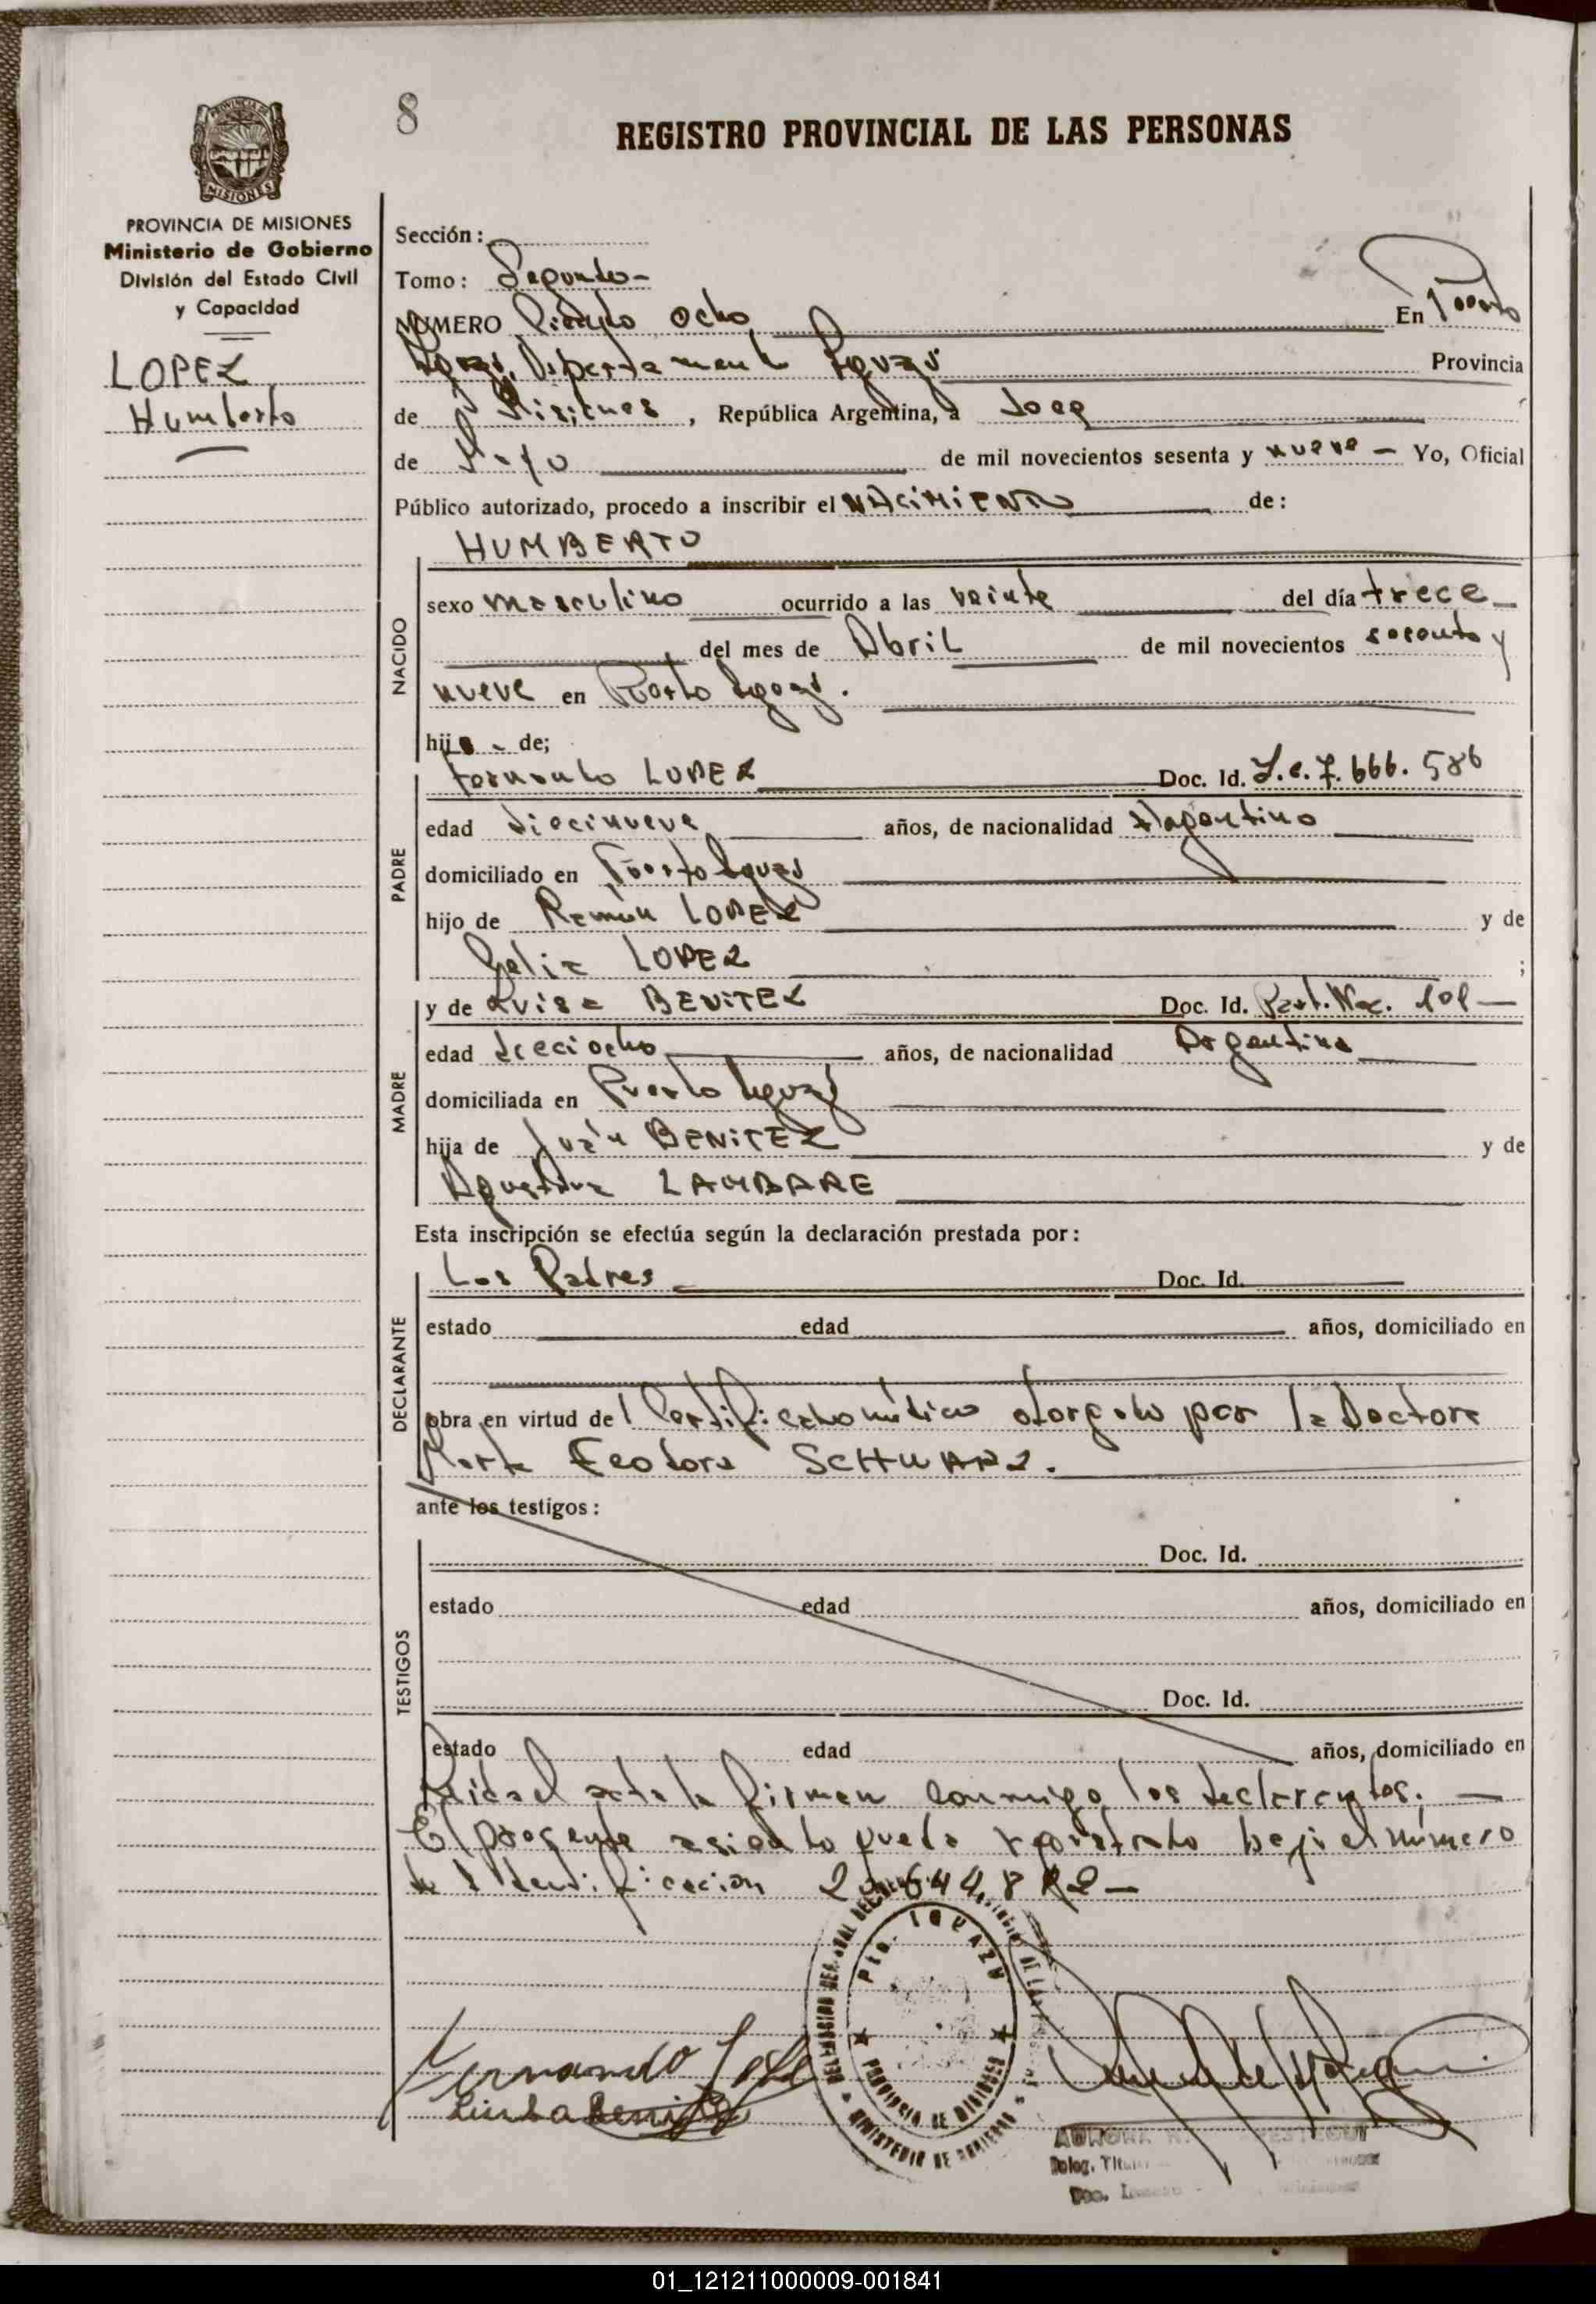 8
REGISTRO PROVINCIAL DE LAS PERSONAS
PROVINCIA DE MISIONES
Ministerio de Gobierno
División del Estado Civil
y Capacidad
LOPEZ
Humberto
Sección:
Tomo: Segundo-
NUMERO Ciento Ocho En Puerto
Iguazú, Departamento Iguazú Provincia
de Misiones, República Argentina, a doce
de Mayo de mil novecientos sesenta y nueve - Yo, Oficial
Público autorizado, procedo a inscribir el NACIMIENTO de:
HUMBERTO
NACIDO
sexo masculino ocurrido a las veinte del día trece
del mes de Abril de mil novecientos sesenta y
nueve en Puerto Iguazú.
hijo de;
PADRE
Fernando LOPEZ Doc. Id. L.e. 7.666.586
edad diecinueve años, de nacionalidad Argentino
domiciliado en Puerto Iguazú
hijo de Ramón LOPEZ y de
LOPEZ ;
MADRE
y de Luisa BENITEZ Doc. Id. Part. Nac.
edad dieciocho años, de nacionalidad Argentina
domiciliada en Puerto Iguazú
hija de Juán BENITEZ y de
Agustina LAMBARE
Esta inscripción se efectúa según la declaración prestada por:
DECLARANTE
Los Padres Doc. Id.
estado edad años, domiciliado en
obra en virtud del Certificado médico otorgado por la Doctora
Marta Teodora SCHWARZ.
ante los testigos:
TESTIGOS
Doc. Id.
estado edad años, domiciliado en
Doc. Id.
estado edad años, domiciliado en
Leida el acta la firman conmigo los declarantes. —
El presente asiento queda registrado bajo el número
de Identificación
Pto. IGUAZU
PROVINCIA DE MISIONES
MINISTERIO DE GOBIERNO
Fernando
Luisa Benitez
01_121211000009-001841